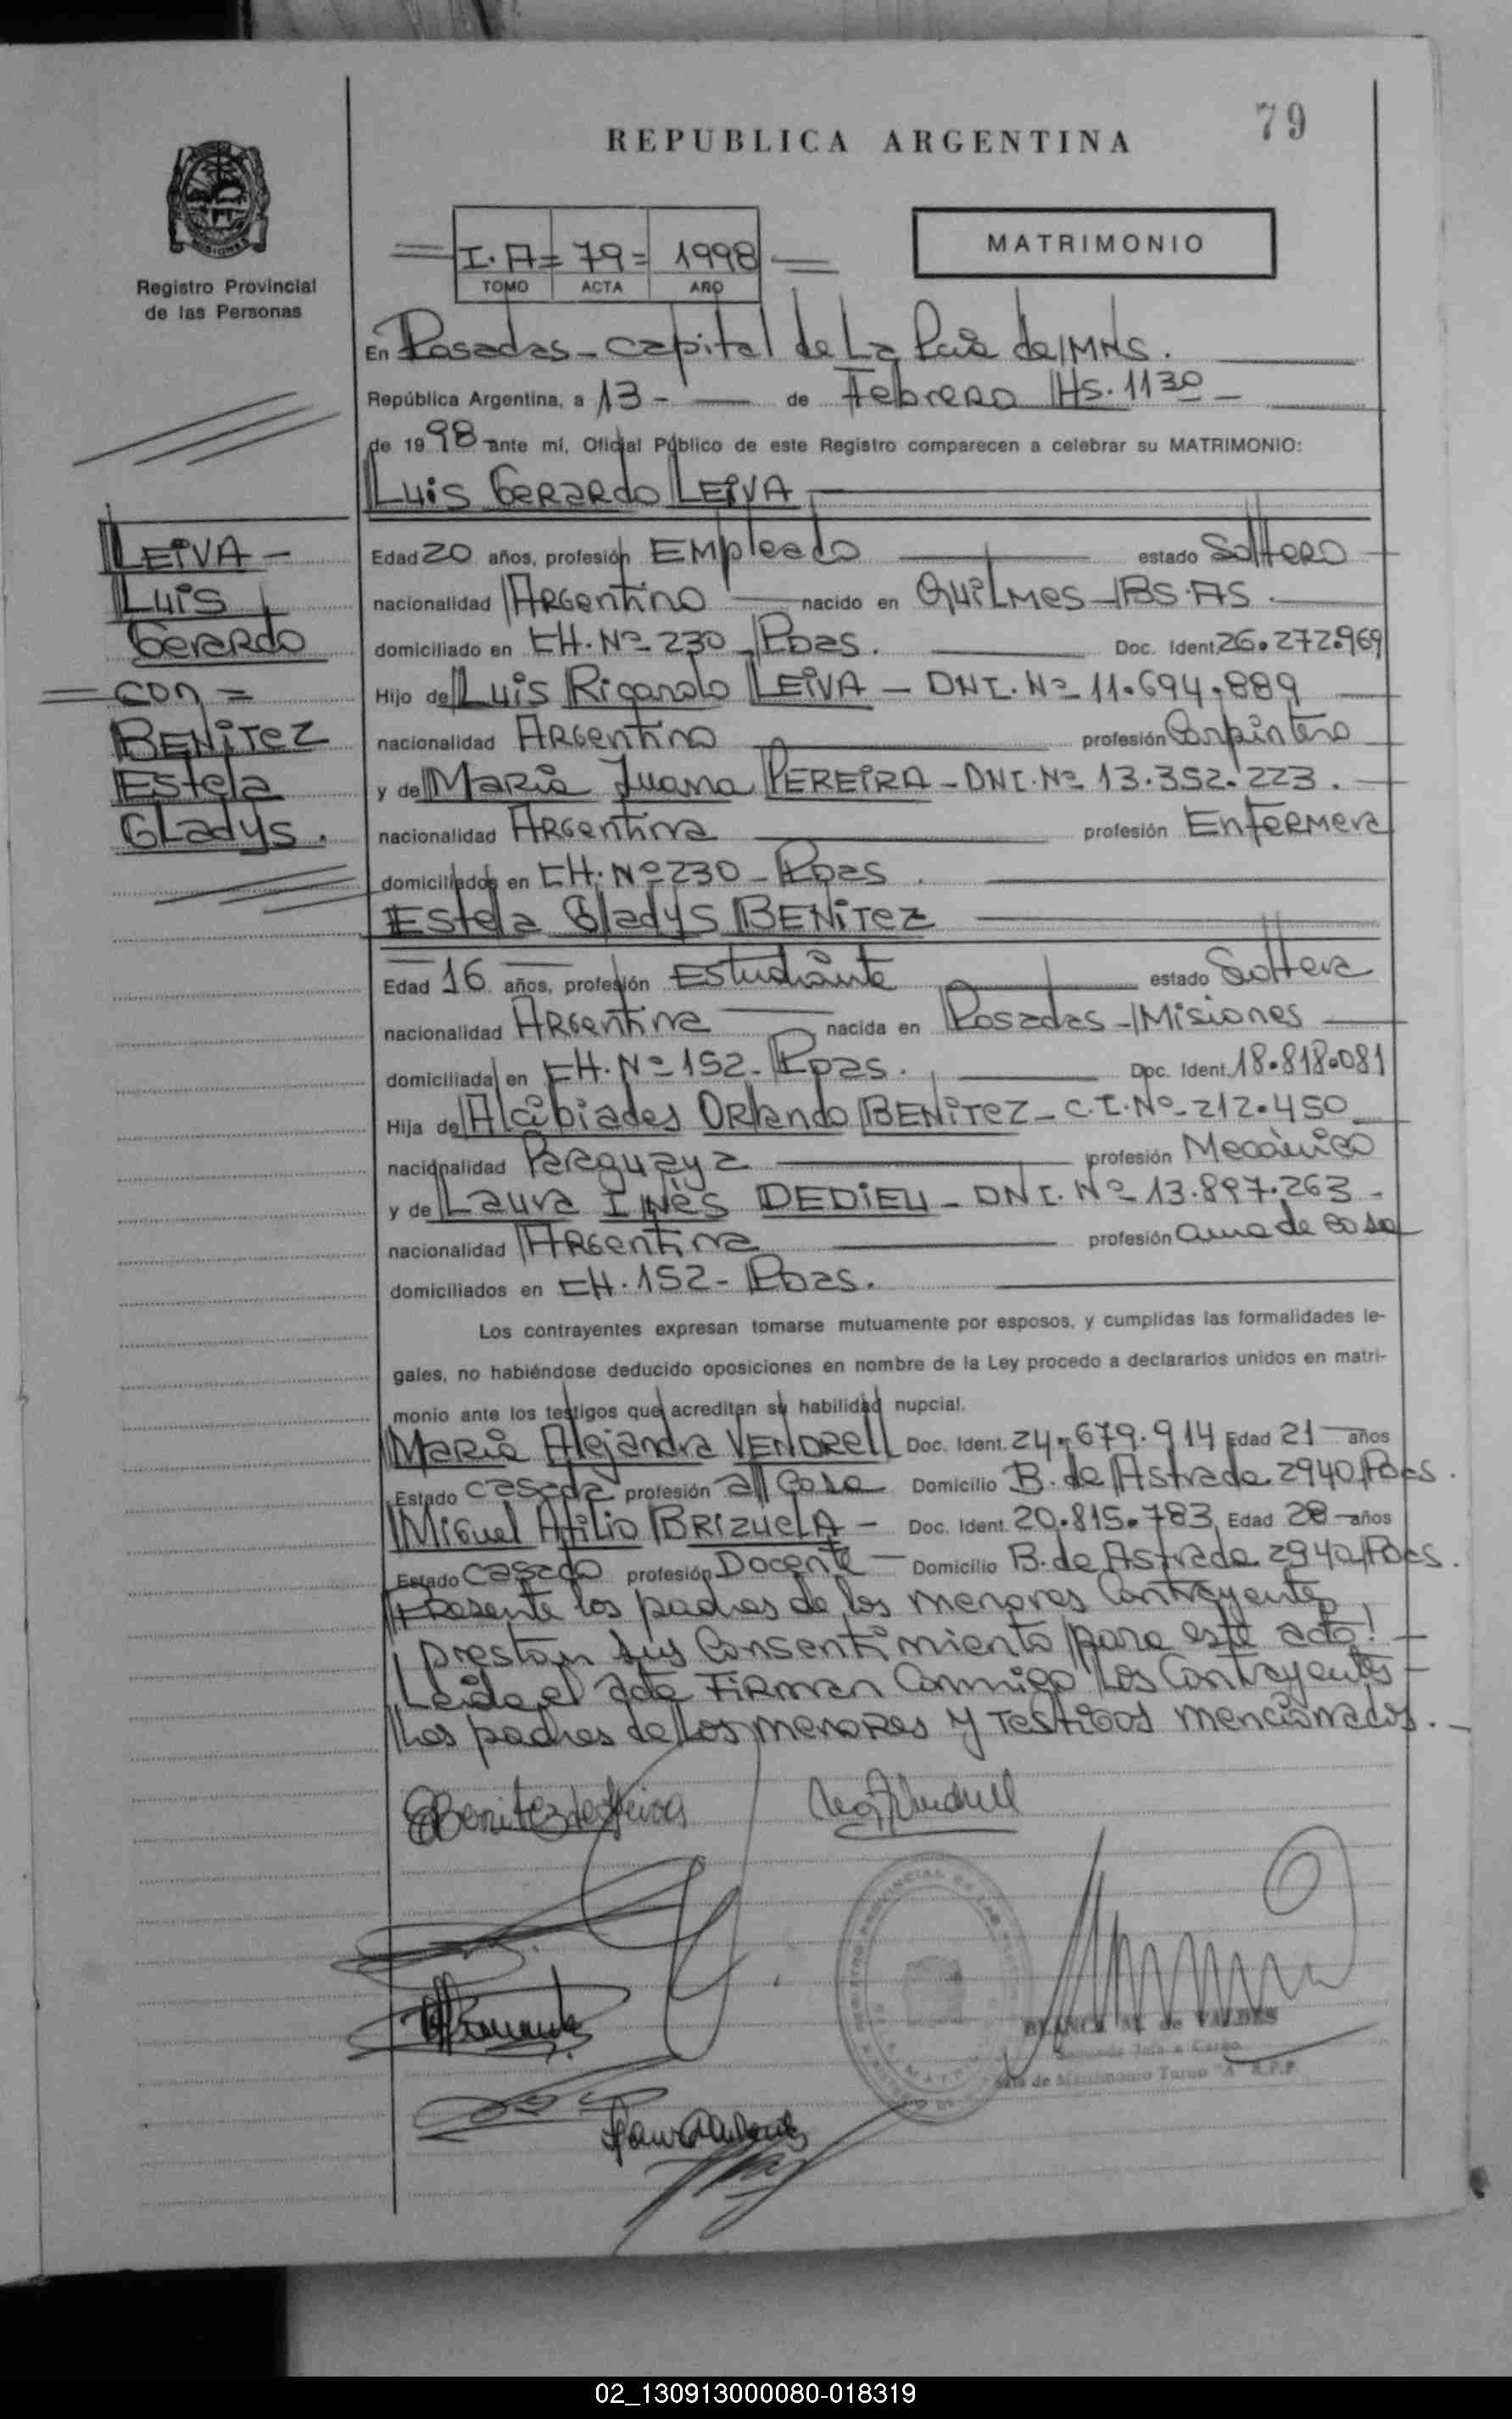 79
REPUBLICA ARGENTINA
I.A = 79 = 1998
TOMO ACTA AÑO
MATRIMONIO
Registro Provincial
de las Personas
En Posadas - Capital de La Pcia de MNS.
República Argentina, a 13 - de Febrero HS. 1130
de 1998 ante mí, Oficial Público de este Registro comparecen a celebrar su MATRIMONIO:
Luis Gerardo LEIVA
LEIVA -
Luis
Gerardo
= con =
BENITEZ
Estela
Gladys.
Edad 20 años, profesión Empleado estado Soltero
nacionalidad Argentino nacido en Quilmes - BS.AS.
domiciliado en CH. Nº 230 - Pdas. Doc. Ident. 26.272.969
Hijo de Luis Ricardo LEIVA - DNI. Nº 11.694.889
nacionalidad Argentino profesión Carpintero
y de Maria Juana PEREIRA - DNI. Nº 13.352.223.
nacionalidad Argentina profesión Enfermera
domiciliados en CH. Nº 230 - Pdas.
Estela Gladys BENITEZ
Edad 16 años, profesión Estudiante estado Soltera
nacionalidad Argentina nacida en Posadas - Misiones
domiciliada en CH. Nº 152 - Pdas. Doc. Ident. 18.818.081
Hija de Alcibiades Orlando BENITEZ - C.I. Nº 212.450
nacionalidad Paraguaya profesión Mecánico
y de Laura Inés DEDIEU - DNI. Nº 13.897.263 -
nacionalidad Argentina profesión ama de casa
domiciliados en CH. 152 - Pdas.
Los contrayentes expresan tomarse mutuamente por esposos, y cumplidas las formalidades le-
gales, no habiéndose deducido oposiciones en nombre de la Ley procedo a declararlos unidos en matri-
monio ante los testigos que acreditan su habilidad nupcial.
Maria Alejandra VENDRELL Doc. Ident. 24.679.914 Edad 21 años
Estado casada profesión a/casa Domicilio B. de Astrada 2940 Pdas.
Miguel Atilio BRIZUELA - Doc. Ident. 20.815.783 Edad 28 años
Estado casado profesión Docente - Domicilio B. de Astrada 2940 Pdas.
Presente los padres de los menores Contrayentes
prestan sus Consentimiento para este acto! -
Leida el acta Firman Conmigo Los Contrayentes -
Los padres de Los menores y Testigos mencionados. -
EBenitez de Leiva
BLANCA M. de VALDES
Segunda Jefa a Cargo
Sala de Matrimonio Turno "A" R.P.P.
02_130913000080-018319